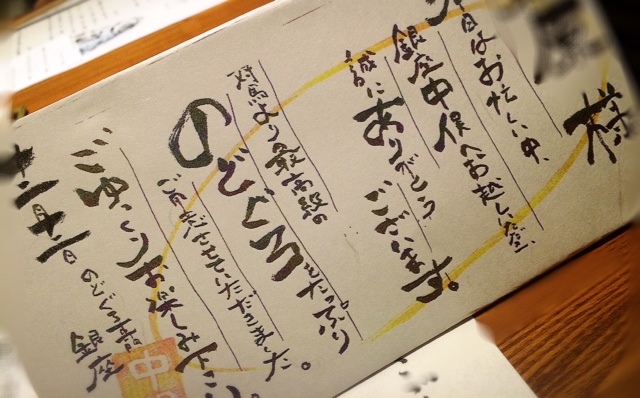 様
今日はお忙しい中、
銀座中俣へお越しいただき、
誠にありがとう
ございます。
対馬より最高級の
のどぐろをたっぷり
ご用意させていただきました。
ごゆっくりお楽しみ下さい。
十二月十一日
のどぐろ
銀座
中